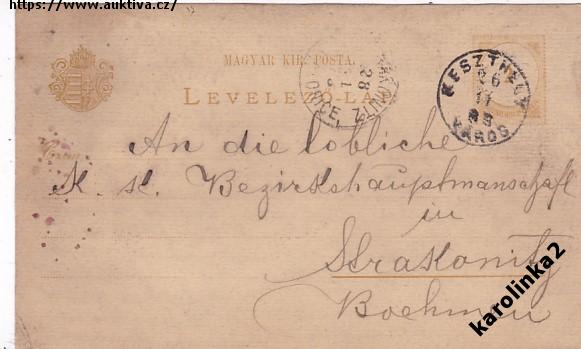 https://www.auktiva.cz/
MAGYAR KIR. POSTA.
LEVELEZŐ-LAP
KESZTHELY
VÁROS
An die löbliche
K. K. Bezirkshauptmanschaft
in
Strakonitz
Boehmen
karolinka2